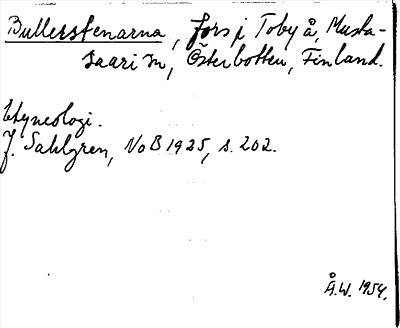 Bullerstenarna, fors i Toby å, Musta-
saari sn, Österbotten, Finland.
Etymologi.
J. Sahlgren, NoB 1925, s. 202.
Å.W. 1954.